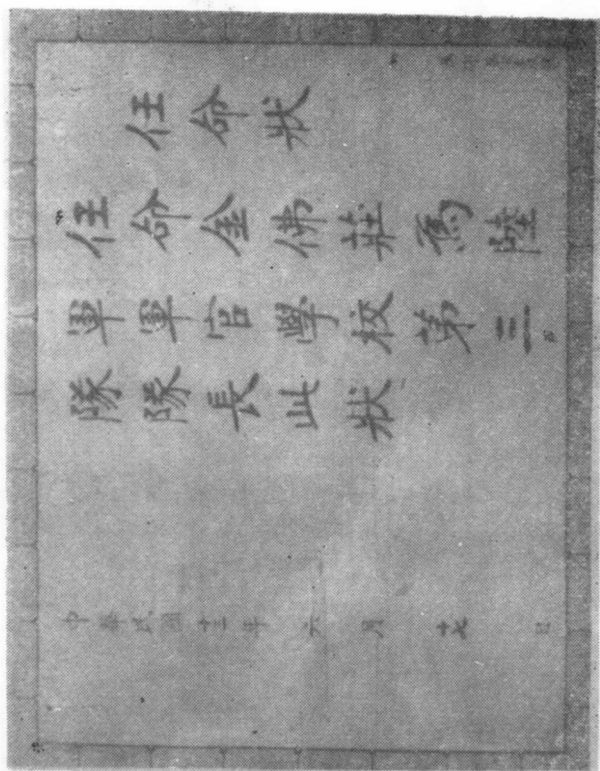 任命狀
任命金佛莊為陸
軍軍官學校第三
隊隊長此狀
中華民國十三年六月十七日